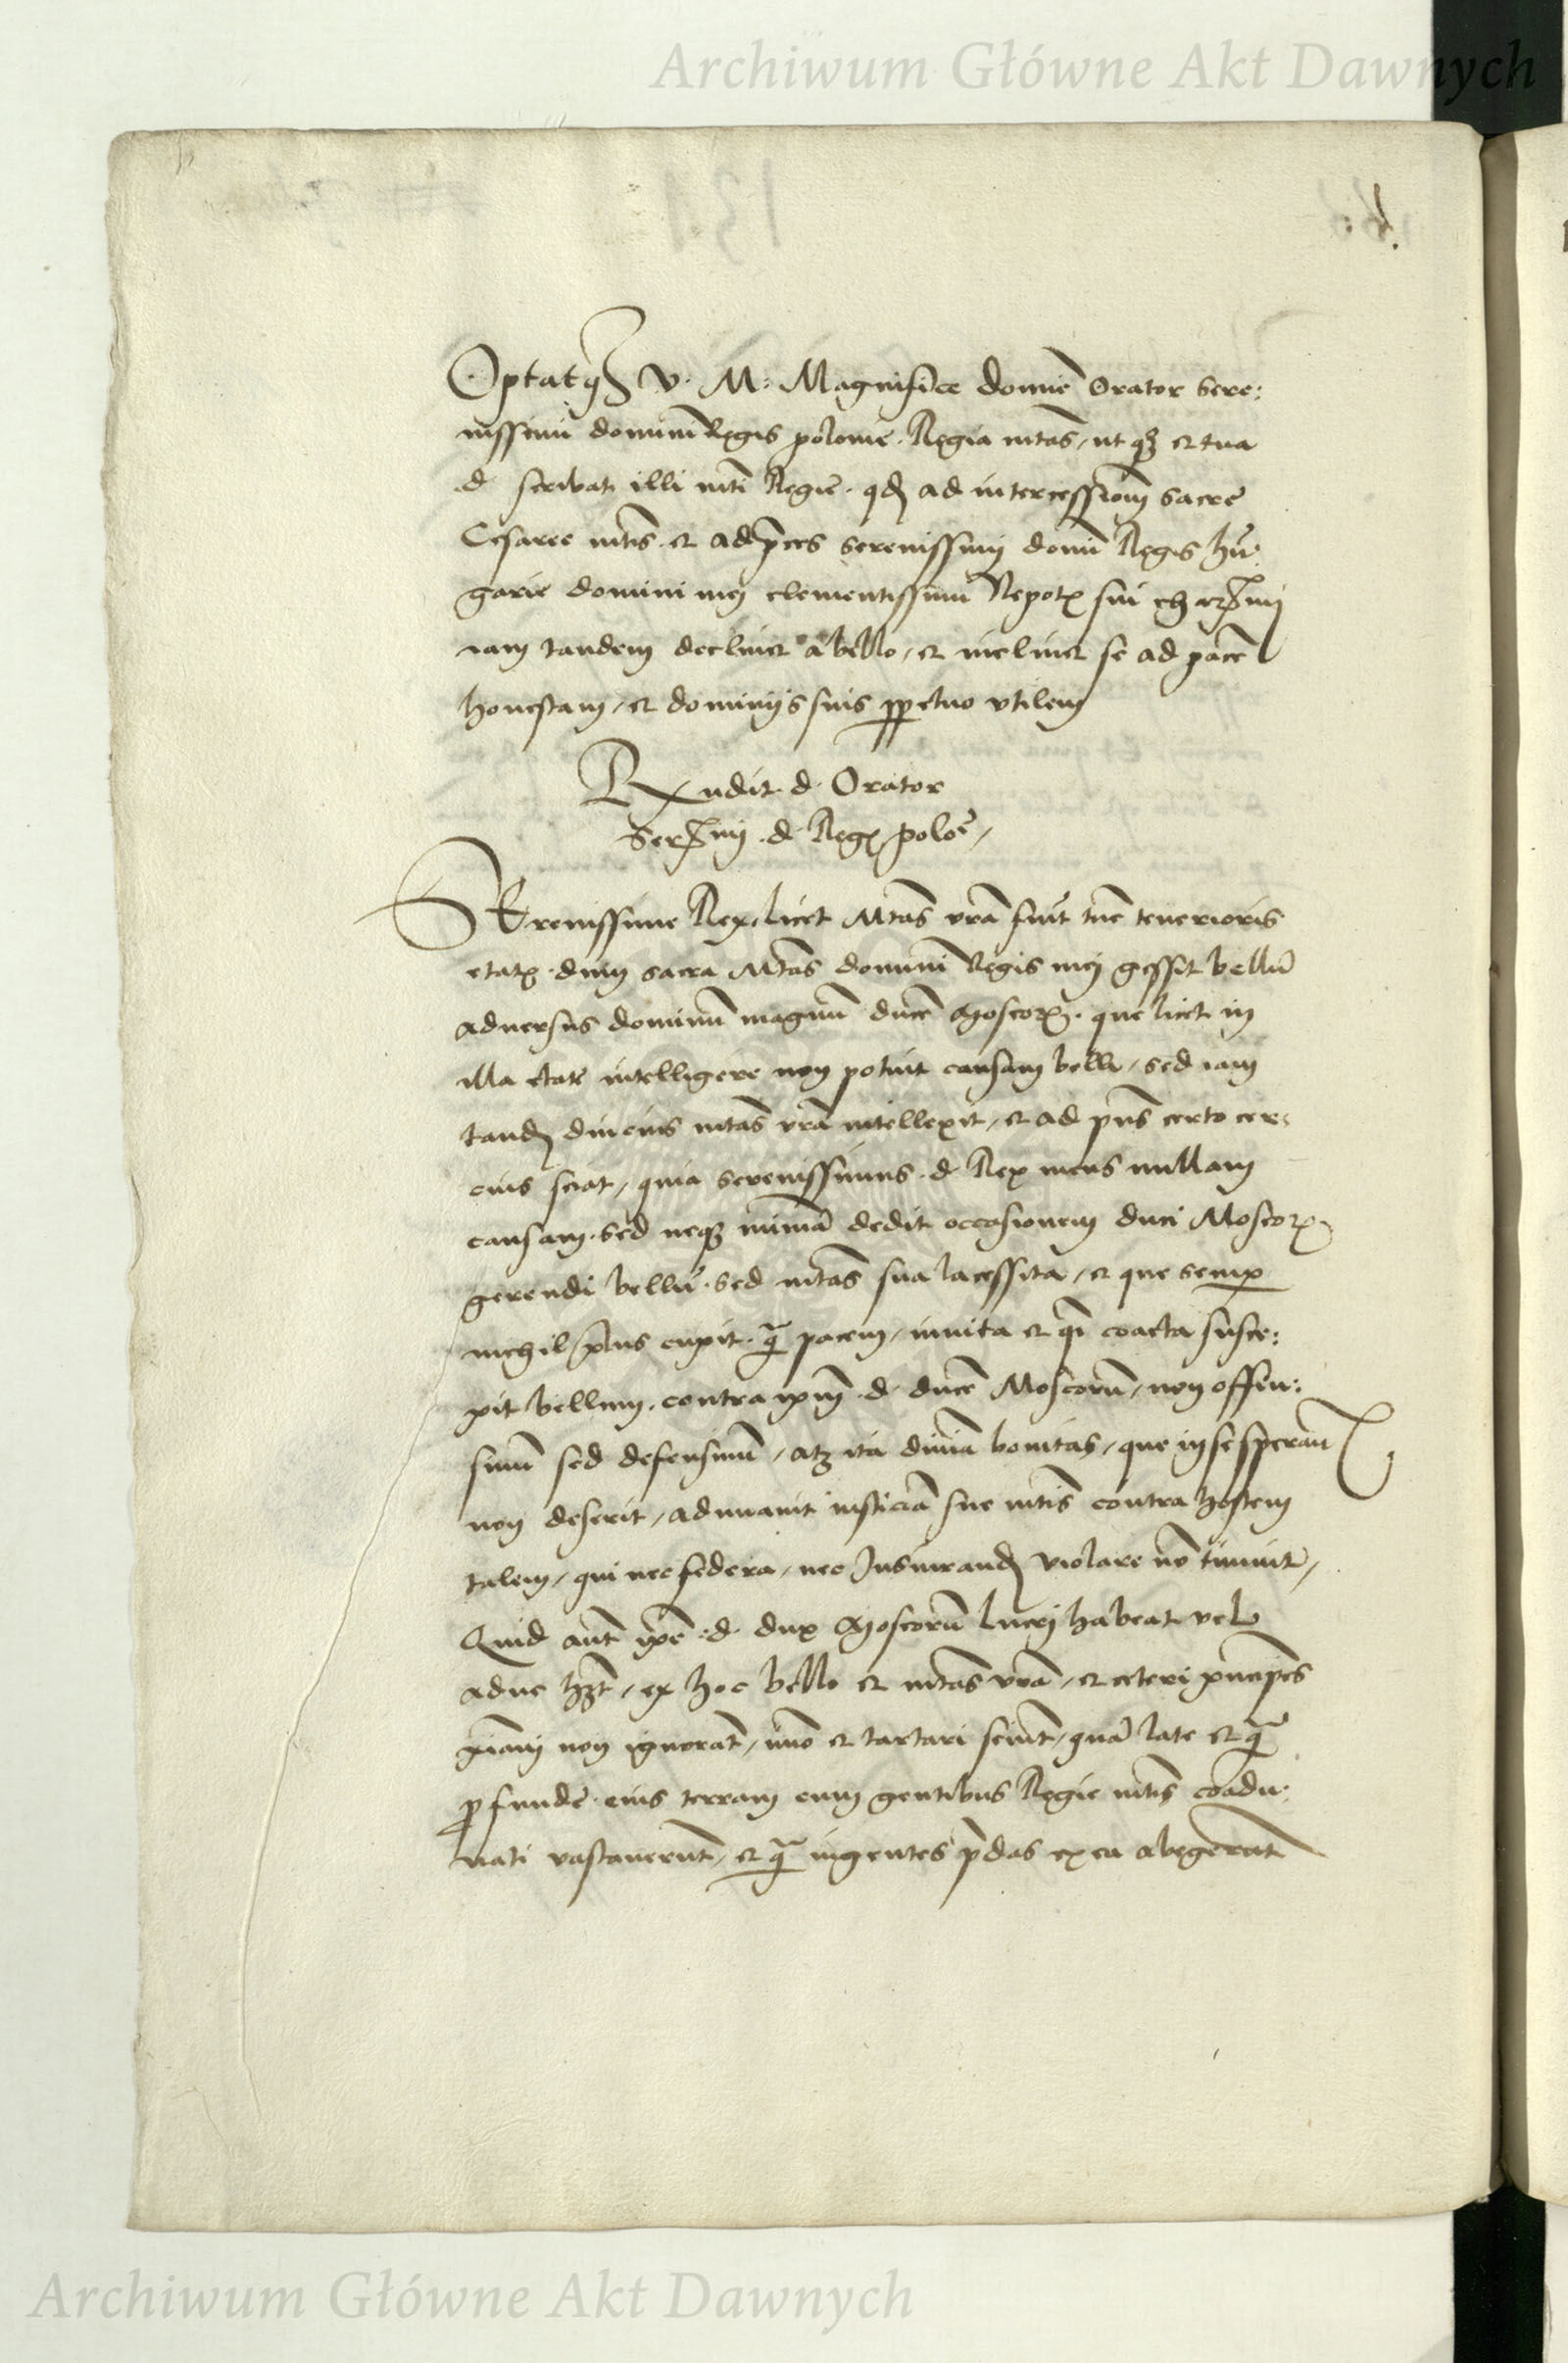 Archiwum Główne Akt Dawnych
Optatq3 V. M: Magnifice domine Orator Sere:
nissimi domini Regis polonie. Regia mtas, ut q3 et tua
d scribat illi mti Regie. qd ad intercessionem sacre
Cesaree mtis. et ad preces serenissimi domini Regis hun:
garie domini mei clementissimi Nepotis sui charissimi
iam tandem declinet a bello, et inclinet se ad pacem
honestam, et dominiis suis perpetuo vtilem
Rndit. d. Orator
Serssimi. d. Regis polonie,
SErenissime Rex, licet Mtas vra fuit tunc tenerioris
etatis. dum sacra Mtas domini Regis mei gessit bellum
aduersus dominum magnum ducem Moscorum. que licet in
illa etate intelligere non potuit causam belli, sed iam
tandem diu eius mtas vra intellexit, et ad pns certo cer:
cius sciat, quia serenissimus. d. Rex meus nullam
causam. sed neq3 minimam dedit occasionem duci Moscorum
gerendi bellum. sed mtas sua lacessita, et que semper
nichil prius cupit. quam pacem, inuita et quasi coacta susce:
pit bellum. contra ipsum. d. ducem Moscorum, non offen:
siuum sed defensiuum, atq3 ita diuina bonitas, que in se sperantem
non deserit, adiuuauit iusticiam sue mtis contra hostem
talem, qui nec federa, nec Jusiurandum violare non timuit,
Quid aut ipse. d. dux Moscorum lucri habeat vel
adhuc habet, ex hoc bello et mtas vra, et ceteri principes
xpiani non ignorant, imo et tartari sciunt, quam late et quam
profunde. eius terram cum gentibus Regie mtis coadu:
nati vastauerunt, et quam ingentes predas ex ea abegerunt
Archiwum Główne Akt Dawnych